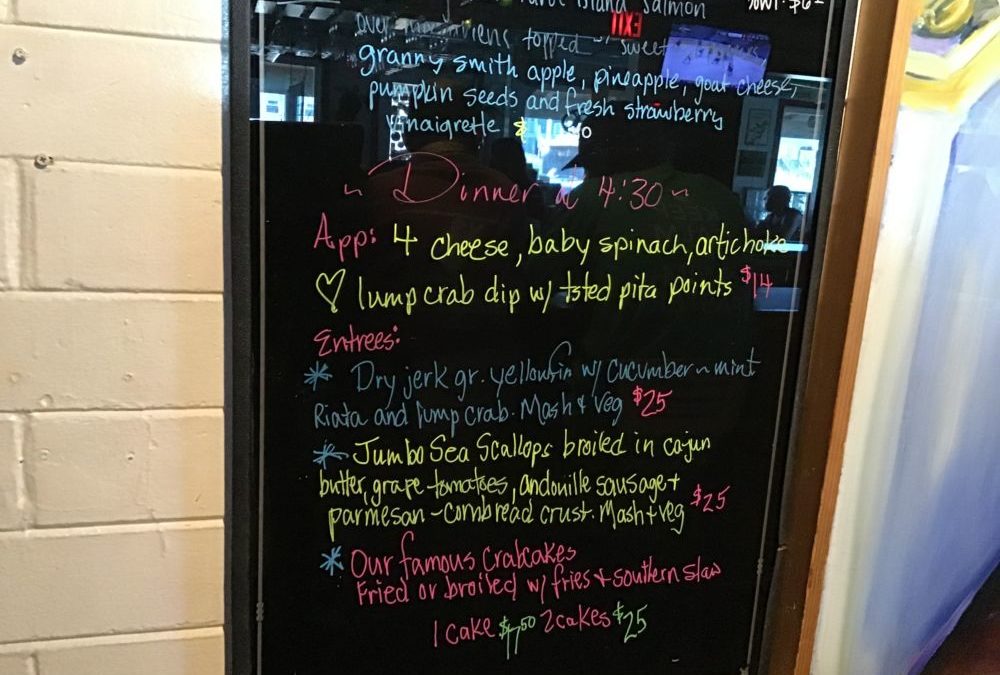 Island Salmon
Bowl $6
EXIT
over greens topped w/ sweet
granny smith apple, pineapple, goat cheese,
pumpkin seeds and fresh strawberry
vinaigrette $
~ Dinner at 4:30 ~
App: 4 cheese, baby spinach, artichoke
lump crab dip w/ tsted pita points $14
Entrees:
* Dry jerk gr. yellowfin w/ cucumber ~ mint
Riata and lump crab. Mash + Veg $25
* Jumbo Sea Scallops broiled in cajun
butter, grape tomatoes, andouille sausage +
parmesan - cornbread crust. Mash + veg $25
* Our famous Crabcakes
Fried or broiled w/ fries + southern slaw
1 cake 2 cakes $25